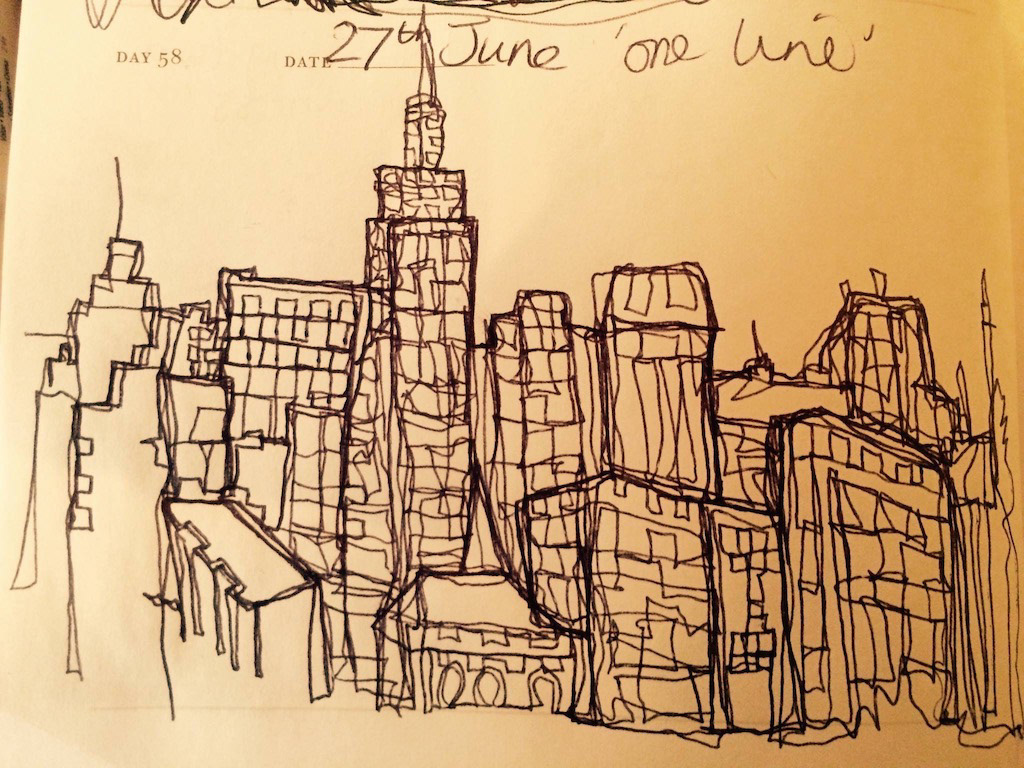 DAY 58 DATE 27th June 'one line'